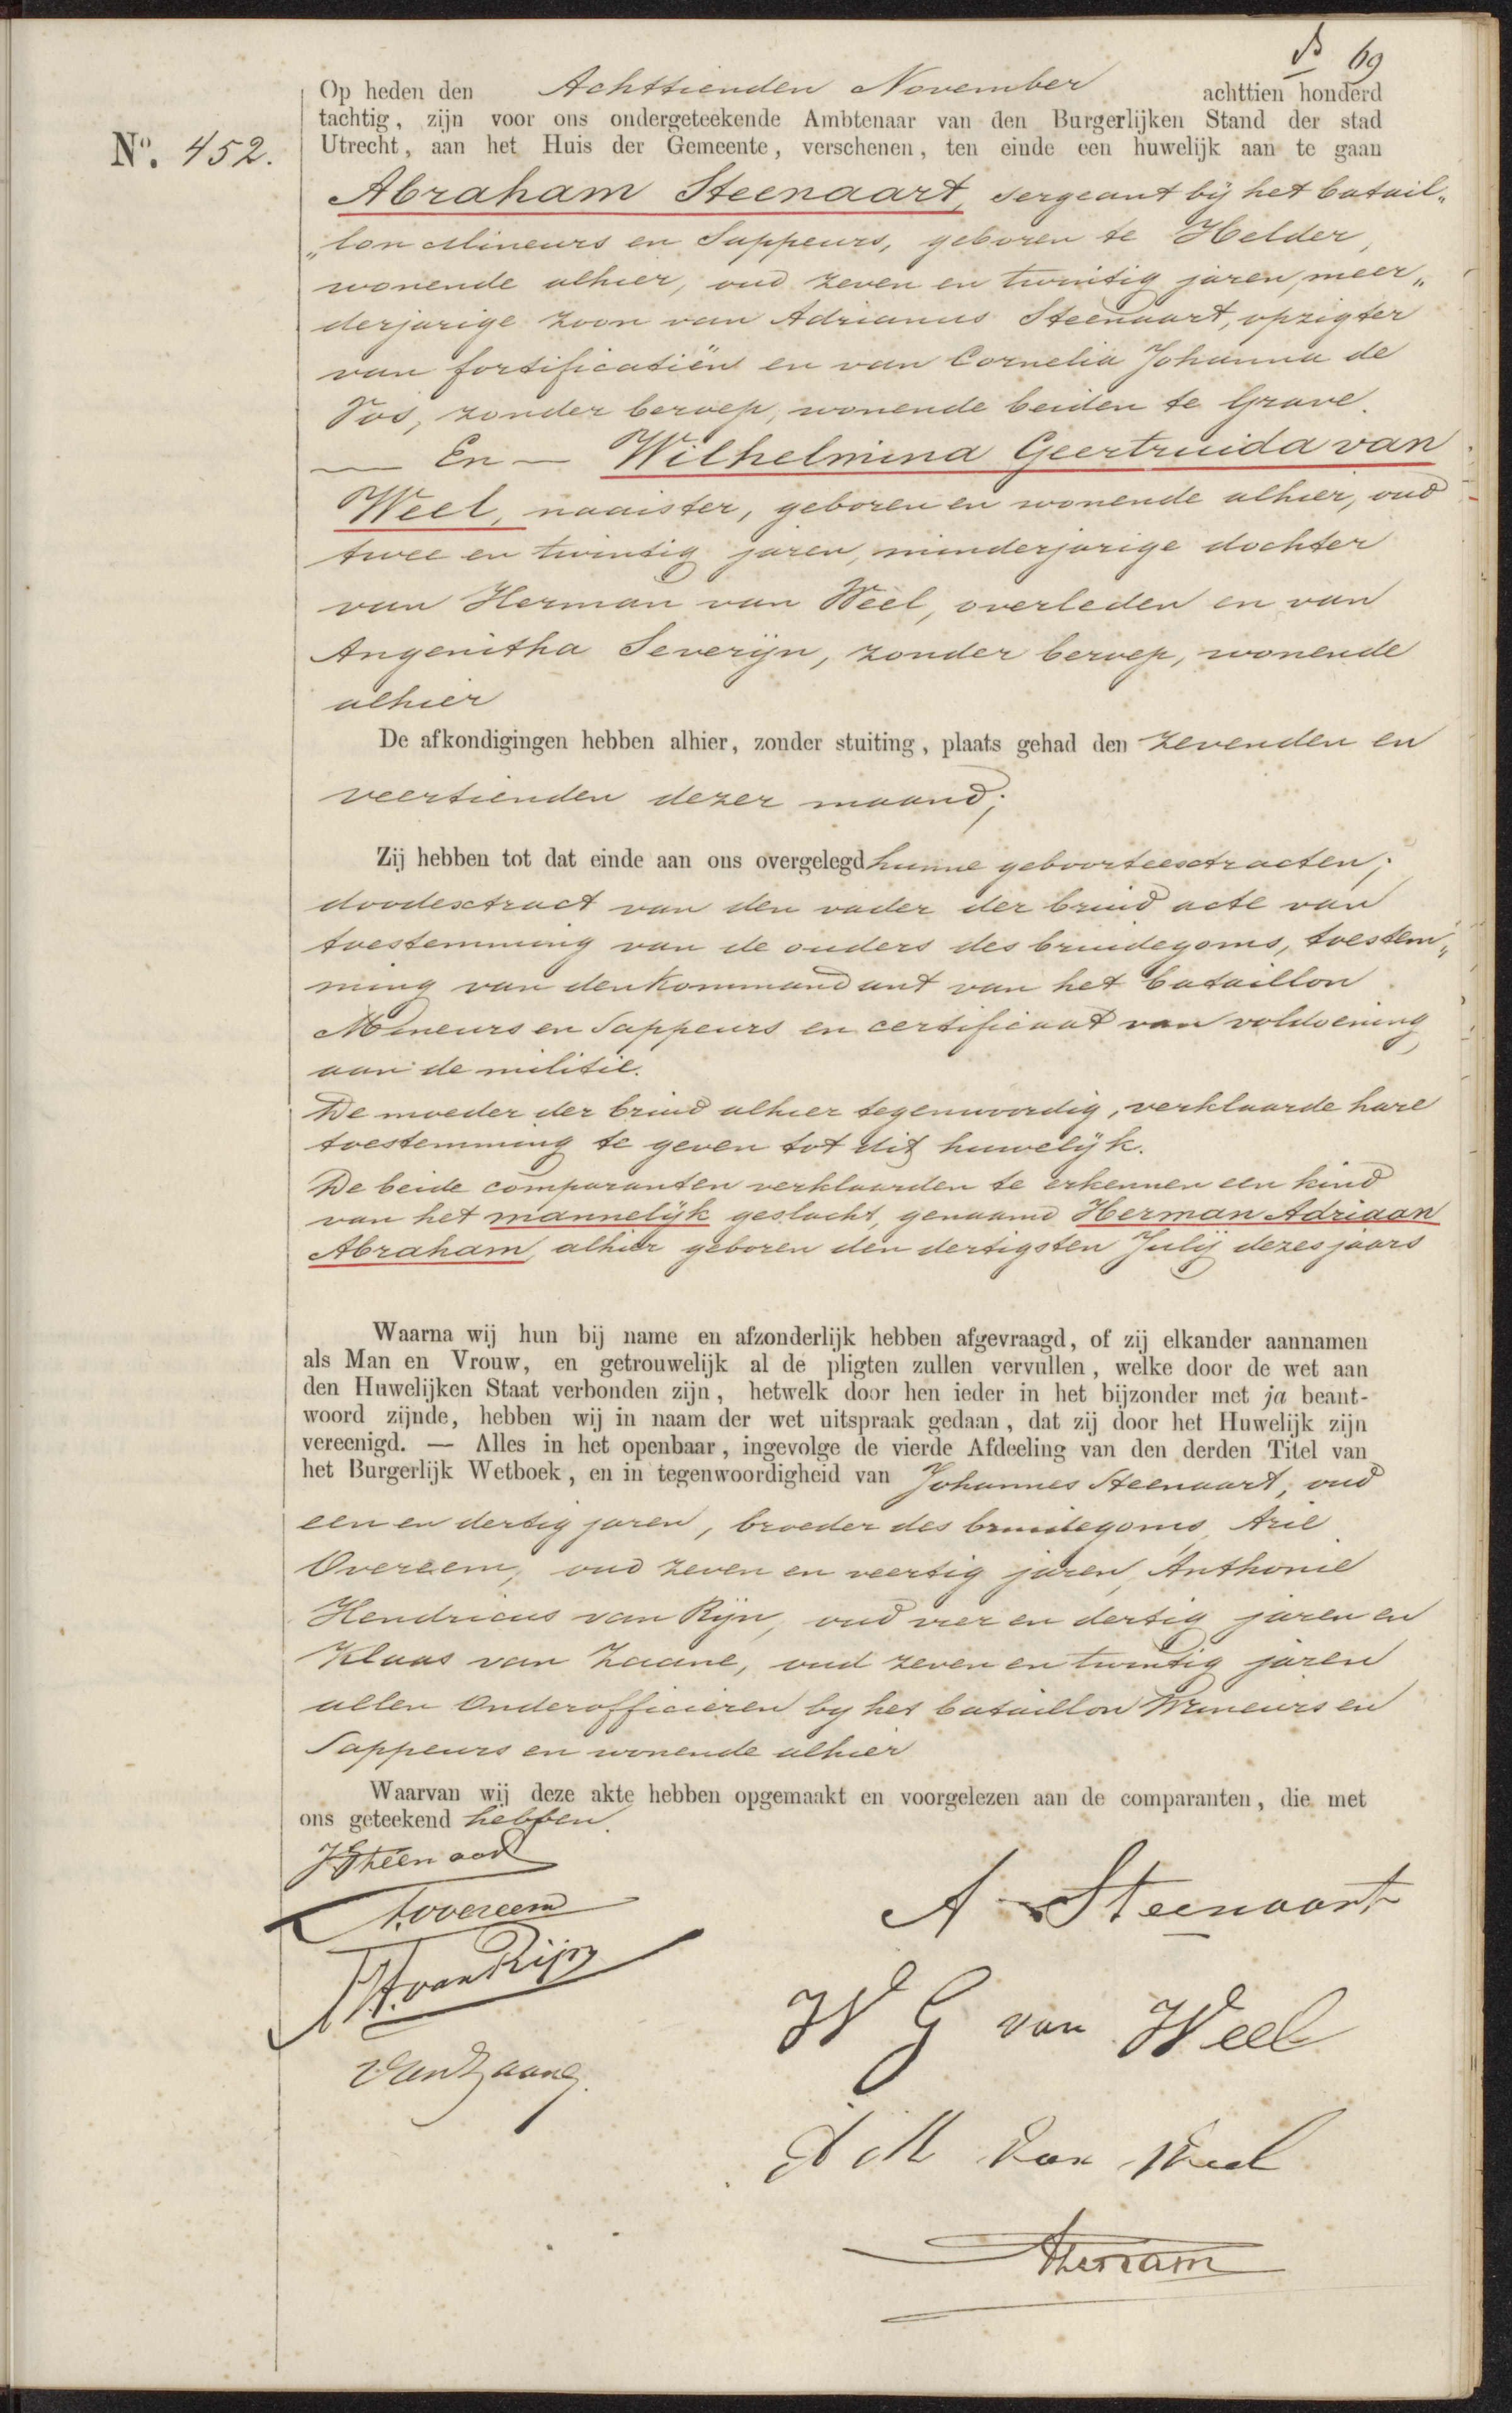 B 69
Op heden den Achttienden November achttien honderd
tachtig, zijn voor ons ondergeteekende Ambtenaar van den Burgerlijken Stand der stad
No. 452.
Utrecht, aan het Huis der Gemeente, verschenen, ten einde een huwelijk aan te gaan
Abraham Steenaart, sergeant bij het batail„
„lon Mineurs en Sappeurs, geboren te Helder,
wonende alhier, oud zeven en twintig jaren, meer„
derjarige zoon van Adrianus Steenaart, opzigter
van fortificatiën en van Cornelia Johanna de
Vos, zonder beroep, wonende beiden te Grave.
— En — Wilhelmina Geertruida van
Weel, naaister, geboren en wonende alhier, oud
twee en twintig jaren, minderjarige dochter
van Herman van Weel, overleden en van
Angenitha Severijn, zonder beroep, wonende
alhier
De afkondigingen hebben alhier, zonder stuiting, plaats gehad den zevenden en
veertienden dezer maand;
Zij hebben tot dat einde aan ons overgelegd hunne geboorteextracten;
doodextract van den vader der bruid acte van
toestemming van de ouders des bruidegoms, toestem„
ming van den Kommandant van het bataillon
Mineurs en Sappeurs en certificaat van voldoening
aan de militie.
De moeder der bruid alhier tegenwoordig, verklaarde hare
toestemming te geven tot dit huwelijk.
De beide comparanten verklaarden te erkennen een kind
van het mannelijk geslacht, genaamd Herman Adriaan
Abraham, alhier geboren den dertigsten Julij dezes jaars
Waarna wij hun bij name en afzonderlijk hebben afgevraagd, of zij elkander aannamen
als Man en Vrouw, en getrouwelijk al de pligten zullen vervullen, welke door de wet aan
den Huwelijken Staat verbonden zijn, hetwelk door hen ieder in het bijzonder met ja beant-
woord zijnde, hebben wij in naam der wet uitspraak gedaan, dat zij door het Huwelijk zijn
vereenigd. — Alles in het openbaar, ingevolge de vierde Afdeeling van den derden Titel van
het Burgerlijk Wetboek, en in tegenwoordigheid van Johannes Steenaart, oud
een en dertig jaren, broeder des bruidegoms, Arie
Overeem, oud zeven en veertig jaren, Anthonie
Hendricus van Rijn, oud vier en dertig jaren en
Klaas van Zaane, oud zeven en twintig jaren
allen Onderofficieren bij het bataillon Mineurs en
Sappeurs en wonende alhier
Waarvan wij deze akte hebben opgemaakt en voorgelezen aan de comparanten, die met
ons geteekend hebben.
J Steenaart
A. Overeem
A Steenaart
AH. van Rijn
W G van Weel
van Zaane
van Weel